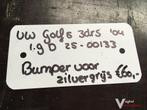 VW Golf 5 3drs '04
1.9 D 25-00133
Bumper voor
zilvergrijs €60,-